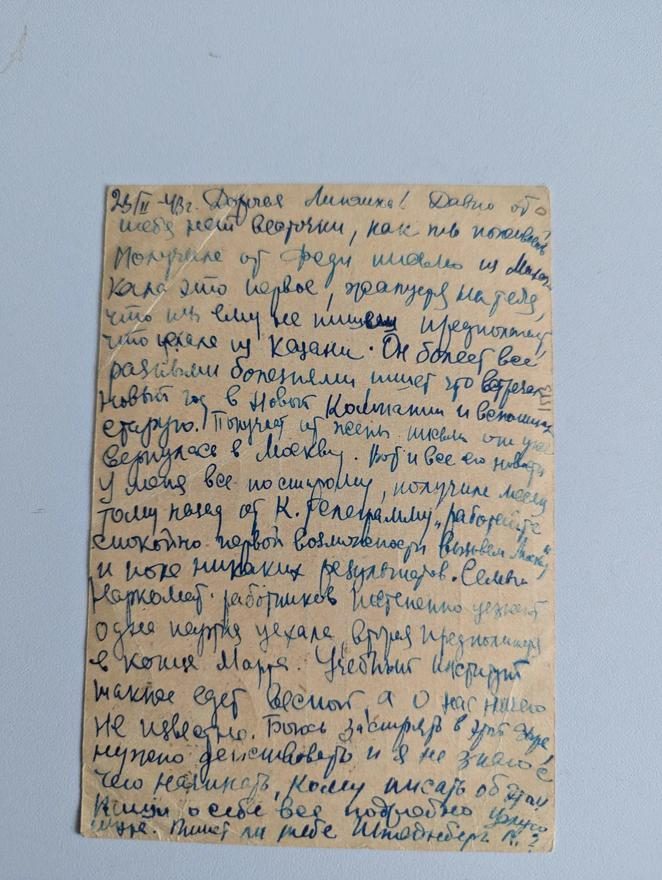 25/II-43г. Дорогая Липочка! Давно от
тебя нет весточки, как ты поживаешь?
Получила от Феди письмо из Махач
кала это первое, жалуется на тебя,
что ты ему не пишешь предполагает
что уехала из Казани. Он болеет все
разными болезнями пишет что встречал
новый год в новый компании и вспоминал
старую. Получает от жены письма она уже
вернулась в Москву. Вот и все его новости
У меня все по старому, получила месяц
тому назад от К. телеграмму „работайте
спокойно первой возможности вызовем Москву"
и пока никаких результатов. Семьи
Наркомат. работников постепенно уезжают
одна партия уехала вторая предполагается
в конце Марта. Учебный институт
также едет весной, а о нас ничего
не известно. Боюсь застрять в этой дыре!
нужно действовать и я не знаю с
чего начинать, кому писать об этом
Пиши о себе все подробно целую
Пишет ли тебе Штейнберг К.?